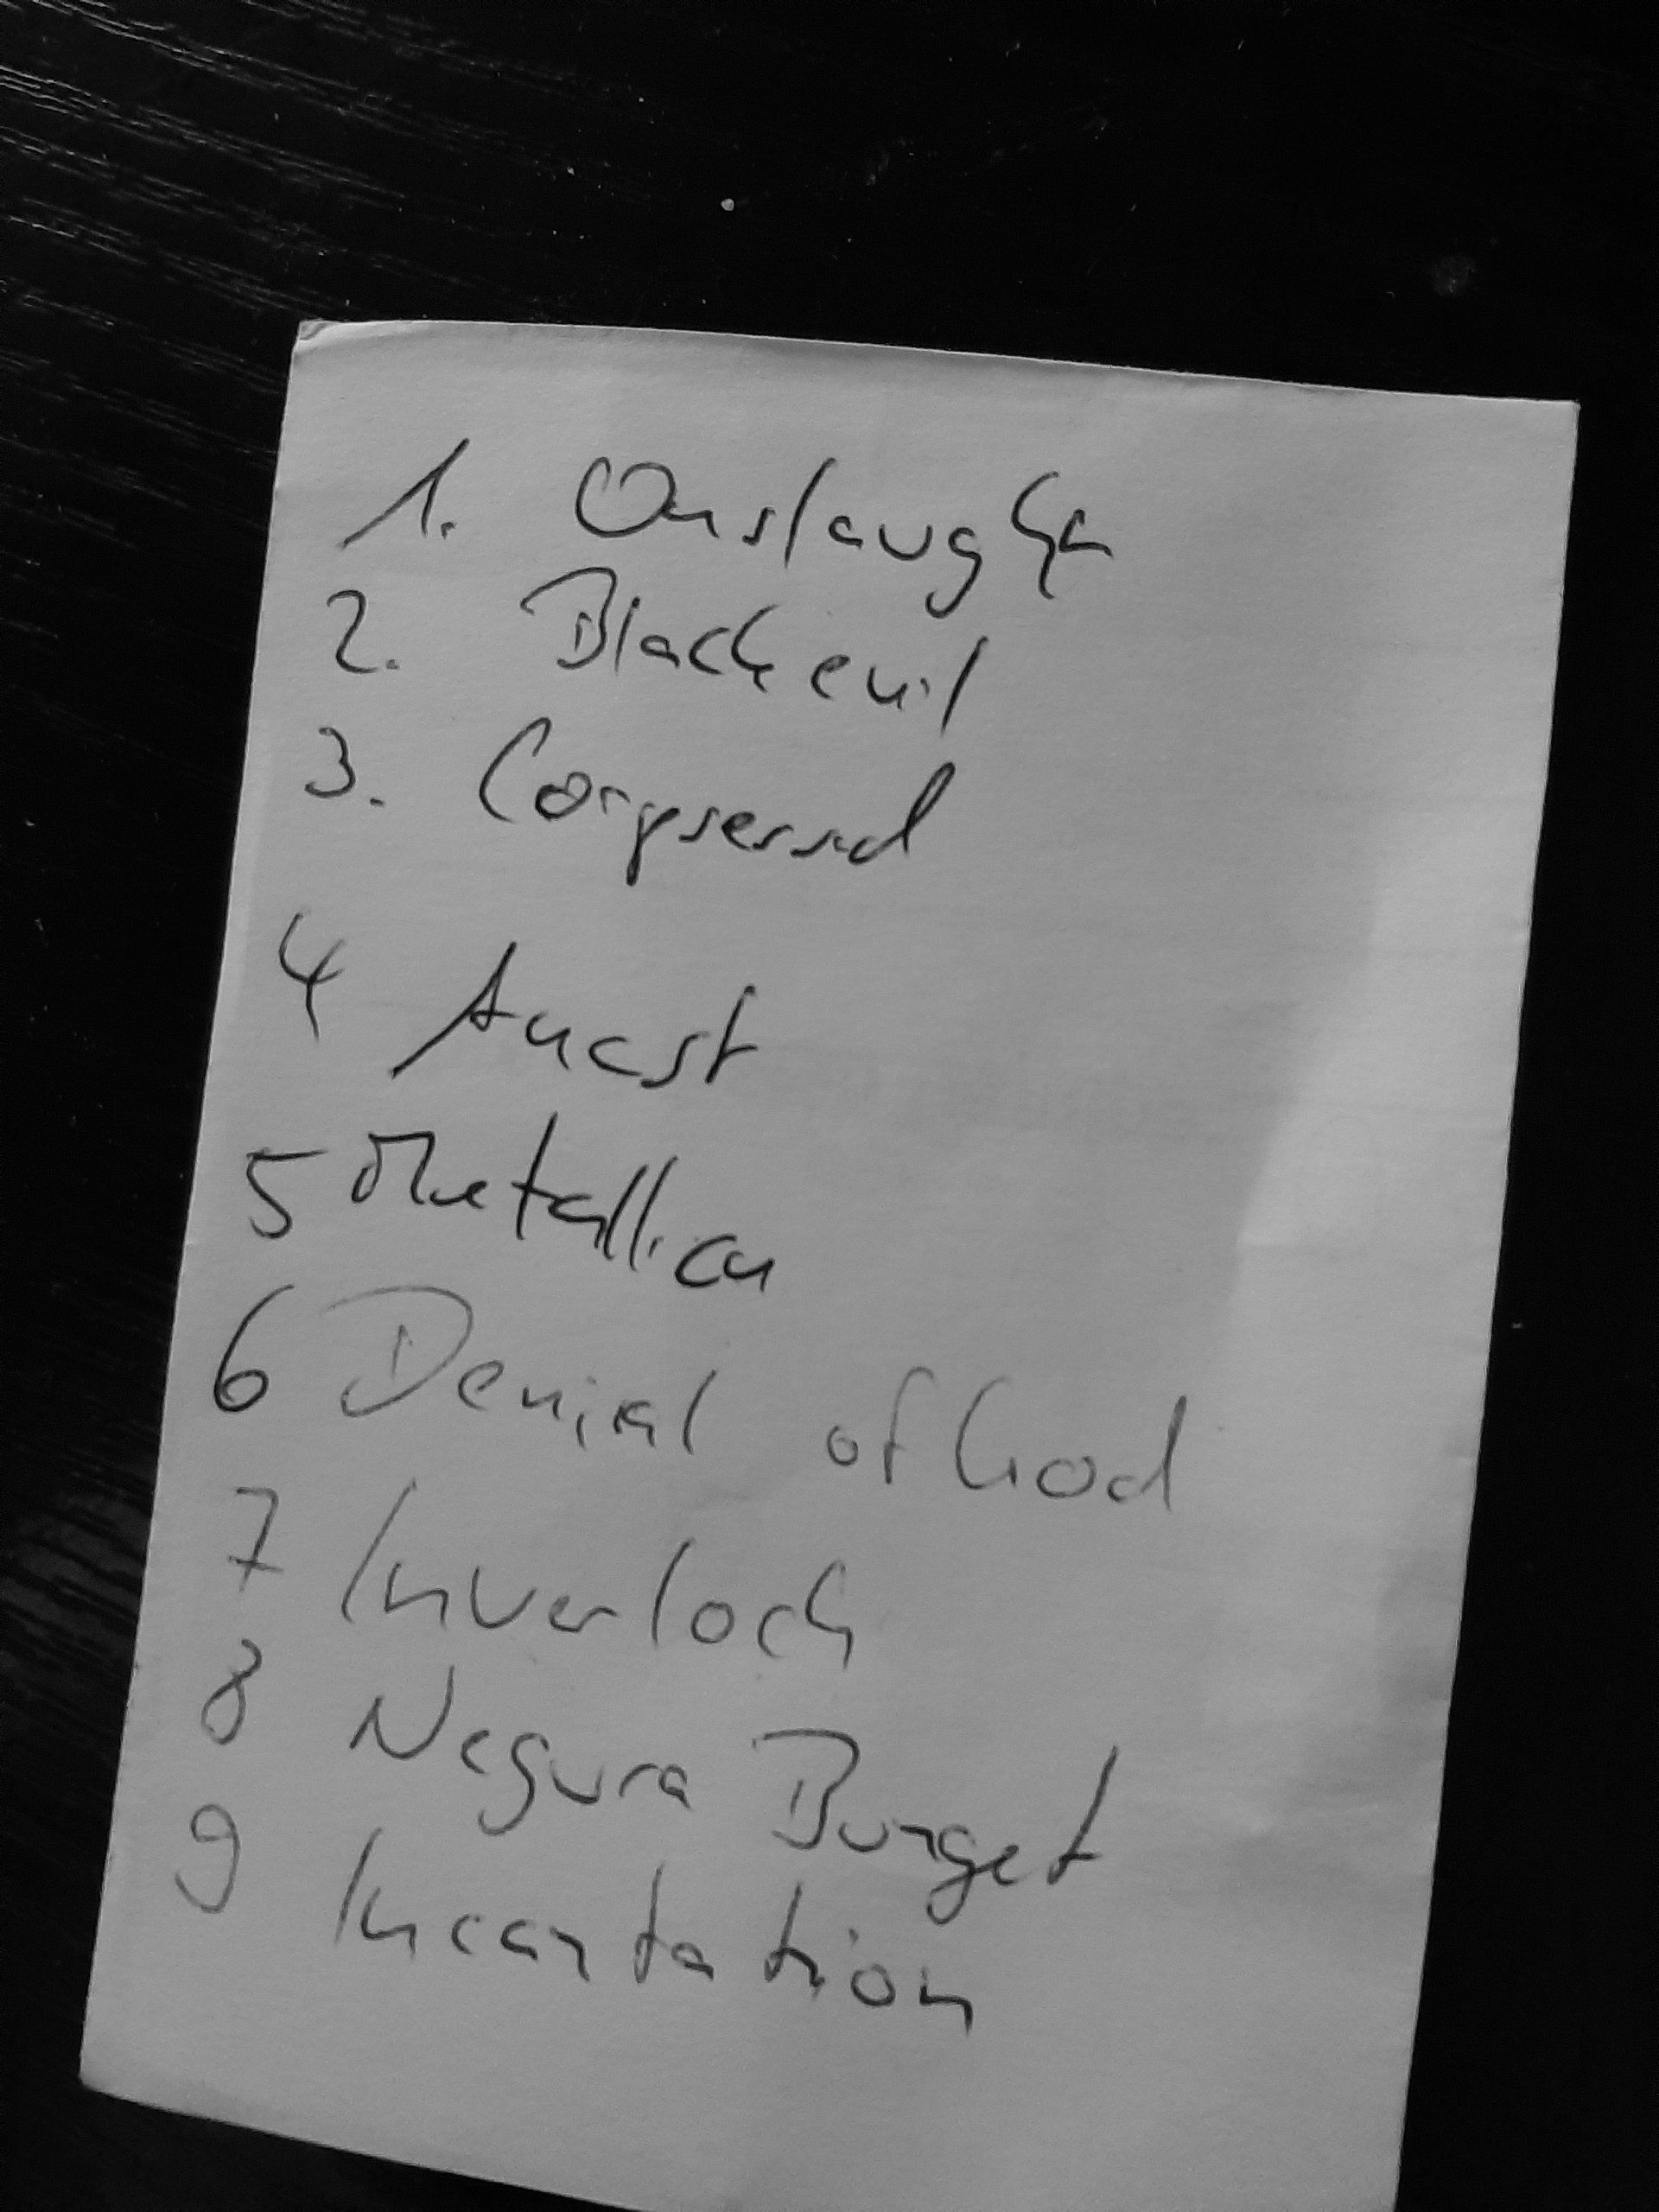 1. Onslaught
2. Blackevil
3. Corpsessed
4 Aucst
5 Metallica
6 Denial of God
7 Inverloch
8 Negura Bunget
9 Incantation